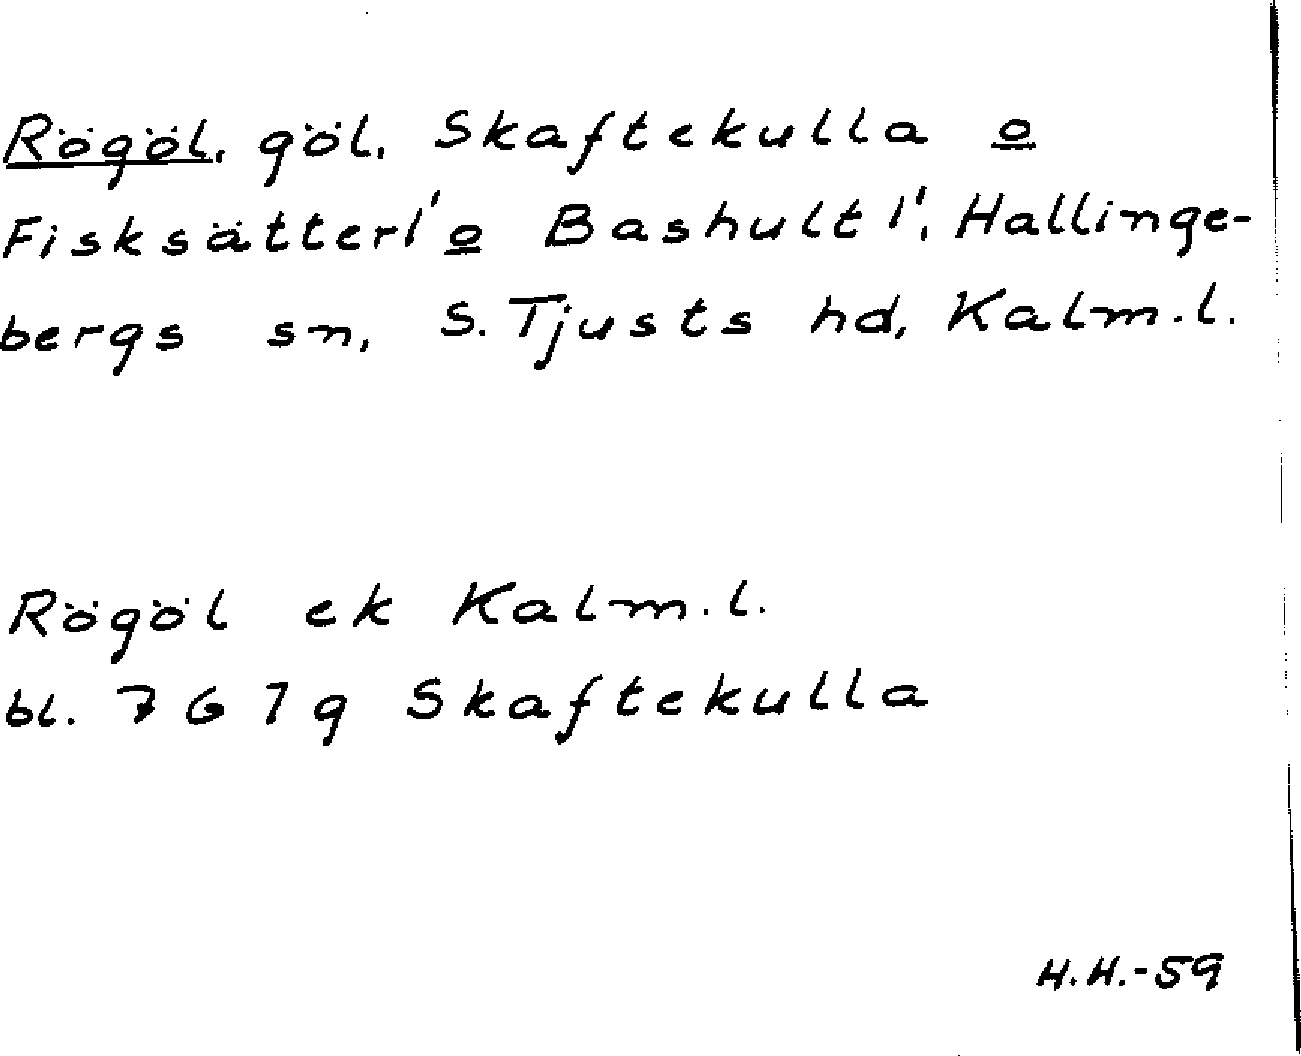 Rögöl, göl, Skaftekulla o
Fisksätter 1' o Bashult 1', Hallinge-
bergs sn, S. Tjusts hd, Kalm.l.
Rögöl ek Kalm.l.
bl. 7 G 7 g Skaftekulla
H.H.-59